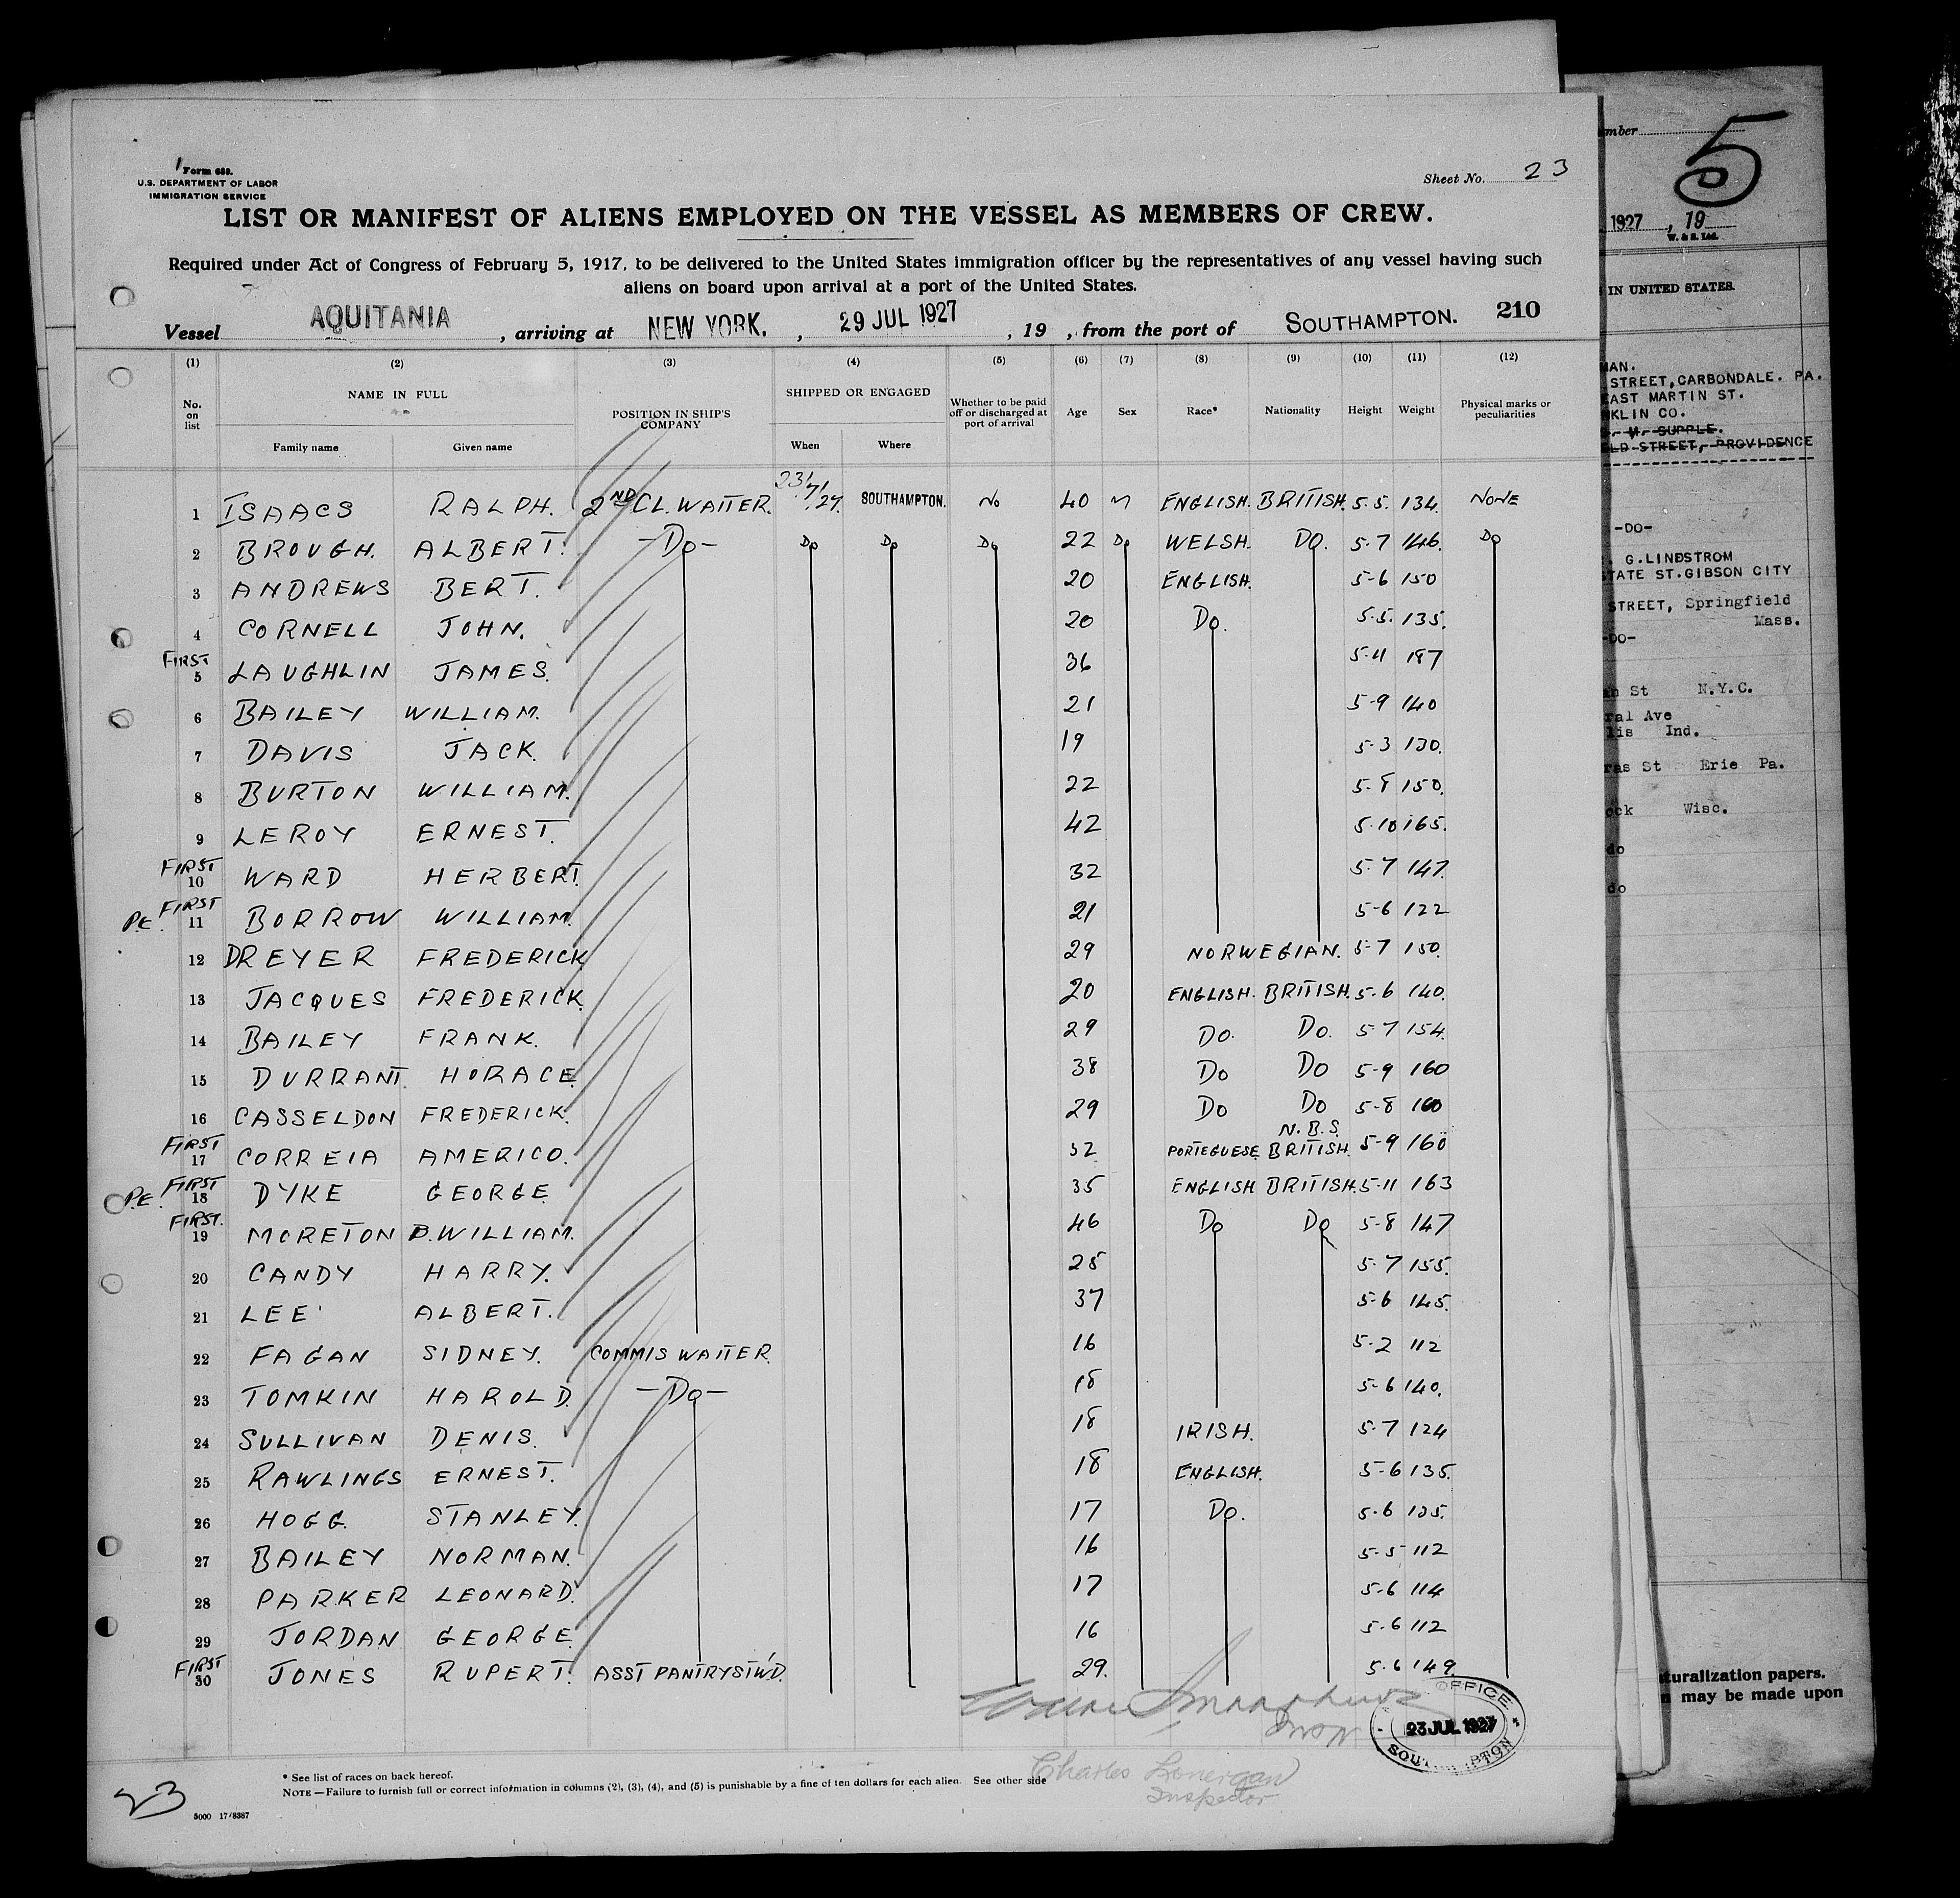 Form 689.
U.S. DEPARTMENT OF LABOR
IMMIGRATION SERVICE
Sheet No. 23
LIST OR MANIFEST OF ALIENS EMPLOYED ON THE VESSEL AS MEMBERS OF CREW.
Required under Act of Congress of February 5, 1917, to be delivered to the United States immigration officer by the representatives of any vessel having such
aliens on board upon arrival at a port of the United States.
Vessel AQUITANIA , arriving at NEW YORK. , 29 JUL 1927 , 19 , from the port of SOUTHAMPTON. 210
(1) (2) (3) (4) (5) (6) (7) (8) (9) (10) (11) (12)
No. on list NAME IN FULL POSITION IN SHIP'S COMPANY SHIPPED OR ENGAGED Whether to be paid off or discharged at port of arrival Age Sex Race* Nationality Height Weight Physical marks or peculiarities
Family name Given name When Where
1 ISAACS RALPH. 2ND CL. WAITER. 23/7/27. SOUTHAMPTON. No 40 M ENGLISH. BRITISH. 5.5. 134. NONE
2 BROUGH. ALBERT. -Do- Do Do Do 22 Do WELSH. DO. 5-7 146. Do
3 ANDREWS BERT. 20 ENGLISH. 5-6 150
4 CORNELL JOHN. 20 Do. 5.5. 135.
FIRST
5 LAUGHLIN JAMES. 36 5-11 187
6 BAILEY WILLIAM. 21 5-9 140
7 DAVIS JACK. 19 5-3 130.
8 BURTON WILLIAM. 22 5-8 150.
9 LEROY ERNEST. 42 5-10 165.
FIRST
10 WARD HERBERT. 32 5-7 147.
FIRST
P.E. 11 BORROW WILLIAM. 21 5-6 122
12 DREYER FREDERICK 29 NORWEGIAN. 5-7 150.
13 JACQUES FREDERICK. 20 ENGLISH. BRITISH. 5-6 140.
14 BAILEY FRANK. 29 Do. Do. 5-7 154.
15 DURRANT. HORACE 38 Do Do 5-9 160
16 CASSELDON FREDERICK. 29 Do Do 5-8 160
N.B.S.
FIRST
17 CORREIA AMERICO. 32 PORTEGUESE BRITISH. 5-9 160
FIRST
P.E. 18 DYKE GEORGE. 35 ENGLISH BRITISH. 5-11 163
FIRST.
19 MORETON B. WILLIAM. 46 Do Do 5-8 147
20 CANDY HARRY. 28 5-7 155.
21 LEE ALBERT. 37 5-6 145.
22 FAGAN SIDNEY. COMMIS WAITER. 16 5-2 112
23 TOMKIN HAROLD. -Do- 18 5-6 140.
24 SULLIVAN DENIS. 18 IRISH. 5-7 124
25 RAWLINGS ERNEST. 18 ENGLISH. 5-6 135.
26 HOGG. STANLEY. 17 Do. 5-6 135.
27 BAILEY NORMAN. 16 5-5 112
28 PARKER LEONARD. 17 5-6 114
29 JORDAN GEORGE 16 5-6 112
FIRST
30 JONES RUPERT. ASST PANTRYSTW'D. 29. 5-6 149.
Insp
OFFICE
23 JUL 1927
* See list of races on back hereof.
NOTE —Failure to furnish full or correct information in columns (2), (3), (4), and (5) is punishable by a fine of ten dollars for each alien. See other side
Charles Lonergan
Inspector
23
5000 17/8387
5
1927 , 19
W. & S. Ltd.
IN UNITED STATES.
STREET, CARBONDALE. PA.
EAST MARTIN ST.
KLIN CO.
M. SUPPLE.
STREET, PROVIDENCE
-DO-
G. LINDSTROM
STATE ST. GIBSON CITY
STREET, Springfield
Mass.
-DO-
St N.Y.C.
Ave
Ind.
St Erie Pa.
Wisc.
do
do
naturalization papers.
may be made upon